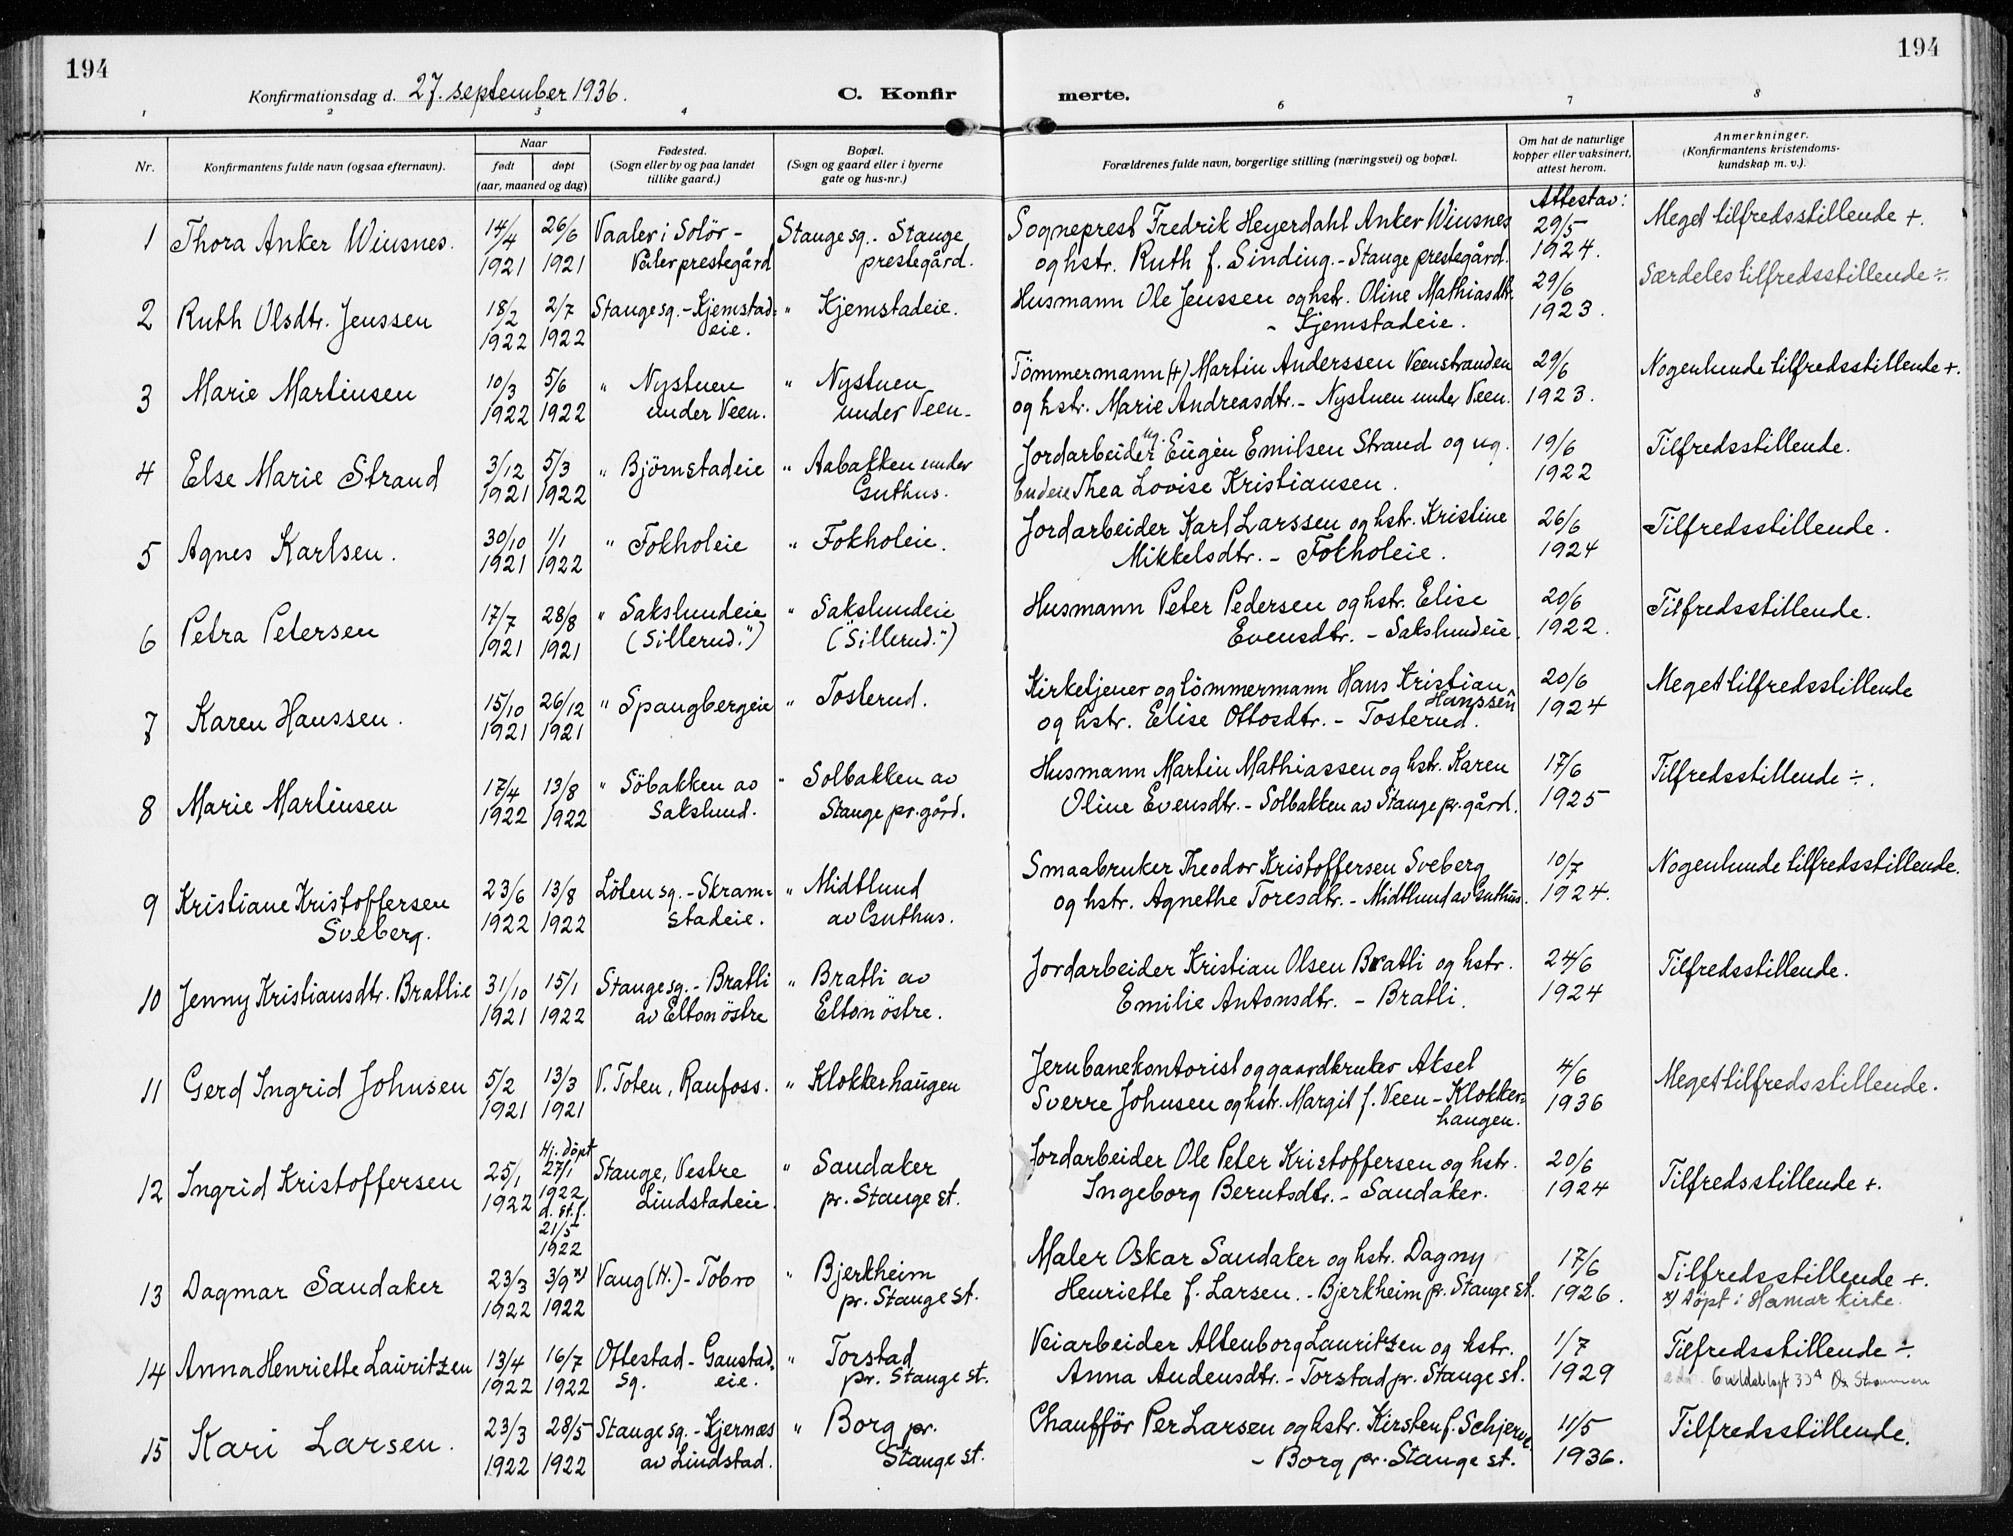 194
194
Konfirmationsdag d. 27. september 1936.
C. Konfir
merte.
1 2 3 4 6 7 8
Nr.
Konfirmantens fulde navn (ogsaa efternavn).
Naar
født
døpt
(aar, maaned og dag)
Fødested.
(Sogn eller by og paa landet
tillike gaard.)
Bopæl.
(Sogn og gaard eller i byerne
gate og hus-nr.)
Forældrenes fulde navn, borgerlige stilling (næringsvei) og bopæl.
Om hat de naturlige
kopper eller vaksinert,
attest herom.
Anmerkninger.
(Konfirmantens kristendoms-
kundskap m. v.).
Attest av:
1 Thora Anker Wiusnes. 14/4 1921 26/6 1921 Vaaler i Solör - Våler prestegård Stange sg. - Stange prestegård. Sogneprest Fredrik Heyerdahl Anker Wiusnes 29/5 Meget tilfredsstillende +.
og hstr. Ruth f. Sinding. - Stange prestegård. 1924.
2 Ruth Olsdtr. Jenssen 18/2 1922 2/7 1922 Stange sg. - Kjemstad= eie. " Kjemstadeie. Husmann Ole Jenssen og hstr. Oline Mathiasdtr. 29/6 Særdeles tilfredsstillende ÷.
- Kjemstadeie. 1923.
3 Marie Martinsen 10/3 1922 5/6 1922 " Nystuen under Veen. " Nystuen under Veen - Tömmermann (+) Martin Anderssen Veenstranden 29/6 Nogenlunde tilfredsstillende +.
og hstr. Marie Andreasdtr. - Nystuen under Veen. 1923.
4 Else Marie Strand 3/12 1921 5/3 1922 " Björnstadeie " Aabakken under Guthus. Jordarbeider ug. Eugen Emilsen Strand og ug. 19/6 Tilfredsstillende.
Thea Lovise Kristiansen. 1922
5 Agnes Karlsen. 30/10 1921 1/1 1922 " Fokholeie " Fokholeie. Jordarbeider Karl Larssen og hstr. Kristine 26/6 Tilfredsstillende.
Mikkelsdtr. - Fokholeie. 1924
6 Petra Petersen 17/7 1921 28/8 1921 " Sakslundeie (Sillerud.") " Sakslundeie ("Sillerud.") Husmann Peter Pedersen og hstr. Elise 20/6 Tilfredsstillende.
Evensdtr. - Sakslundeie. 1922.
7 Karen Hanssen. 15/10 1921 26/12 1921 " Spangbergeie " Tosterud. Kirketjener og tömmermann Hans Kristian Hanssen 20/6 Meget tilfredsstillende
og hstr. Elise Ottosdtr. - Tosterud. 1924
8 Marie Martinsen 17/4 1922 13/8 1922 " Söbakken av Sakslund. " Solbakken av Stange pr.gård. Husmann Martin Mathiassen og hstr. Karen 17/6 Tilfredsstillende ÷.
Oline Evensdtr. - Solbakken av Stange pr.gård. 1925
9 Kristiane Kristoffersen Sveberg. 23/6 1922 13/8 1922 Löten sg. - Skram= stadeie. " Midtlund av Guthus. Smaabruker Theodor Kristoffersen Sveberg 10/7 Nogenlunde tilfredsstillende.
og hstr. Agnethe Toresdtr. - Midtlund av Guthus. 1924.
10 Jenny Kristiansdtr. Brattlie 31/10 1921 15/1 1922 Stange sg. - Bratli av Elton östre " Bratli av Elton östre. Jordarbeider Kristian Olsen Bratli og hstr. 24/6 Tilfredsstillende.
Emilie Antonsdtr. - Bratli. 1924
11 Gerd Ingrid Johnsen 5/2 1921 13/3 1921 V. Toten, Raufoss. " Klokkerhaugen Jernbanekontorist og gaardbruker Aksel 4/6 Meget tilfredsstillende.
Sverre Johnsen og hstr. Margit f. Veen - Klokker= haugen. 1936
12 Ingrid Kristoffersen 25/1 1922 Hj. döpt 27/1 1922 d. st. f. 21/5 1922 Stange, Vestre Lindstadeie. " Sandaker pr. Stange st. Jordarbeider Ole Peter Kristoffersen og hstr. 20/6 Tilfredsstillende +.
Ingeborg Berntsdtr. - Sandaker. 1924
13 Dagmar Sandaker 23/3 1922 3/9 x) 1922 Vang (H.) - Tobro " Bjerkheim pr. Stange st. Maler Oskar Sandaker og hstr. Dagny 17/6 Tilfredsstillende +.
Henriette f. Larsen. - Bjerkheim pr. Stange st. 1926. x) Döpt i Hamar kirke.
14 Anna Henriette Lauritzen 13/4 1922 16/7 1922 Ottestad - Gaustad= sg. eie. " Torstad pr. Stange st. Veiarbeider Altenborg Lauritzen og hstr. 1/7 Tilfredsstillende ÷.
Anna Andensdtr. - Torstad pr. Stange st. 1929
15 Kari Larsen. 23/3 1922 28/5 1922 Stange sg. - Kjernæs av Lindstad. " Borg pr. Stange st. Chaufför Per Larsen og hstr. Kirsten f. Schjerve 11/5 Tilfredsstillende.
- Borg pr. Stange st. 1936.